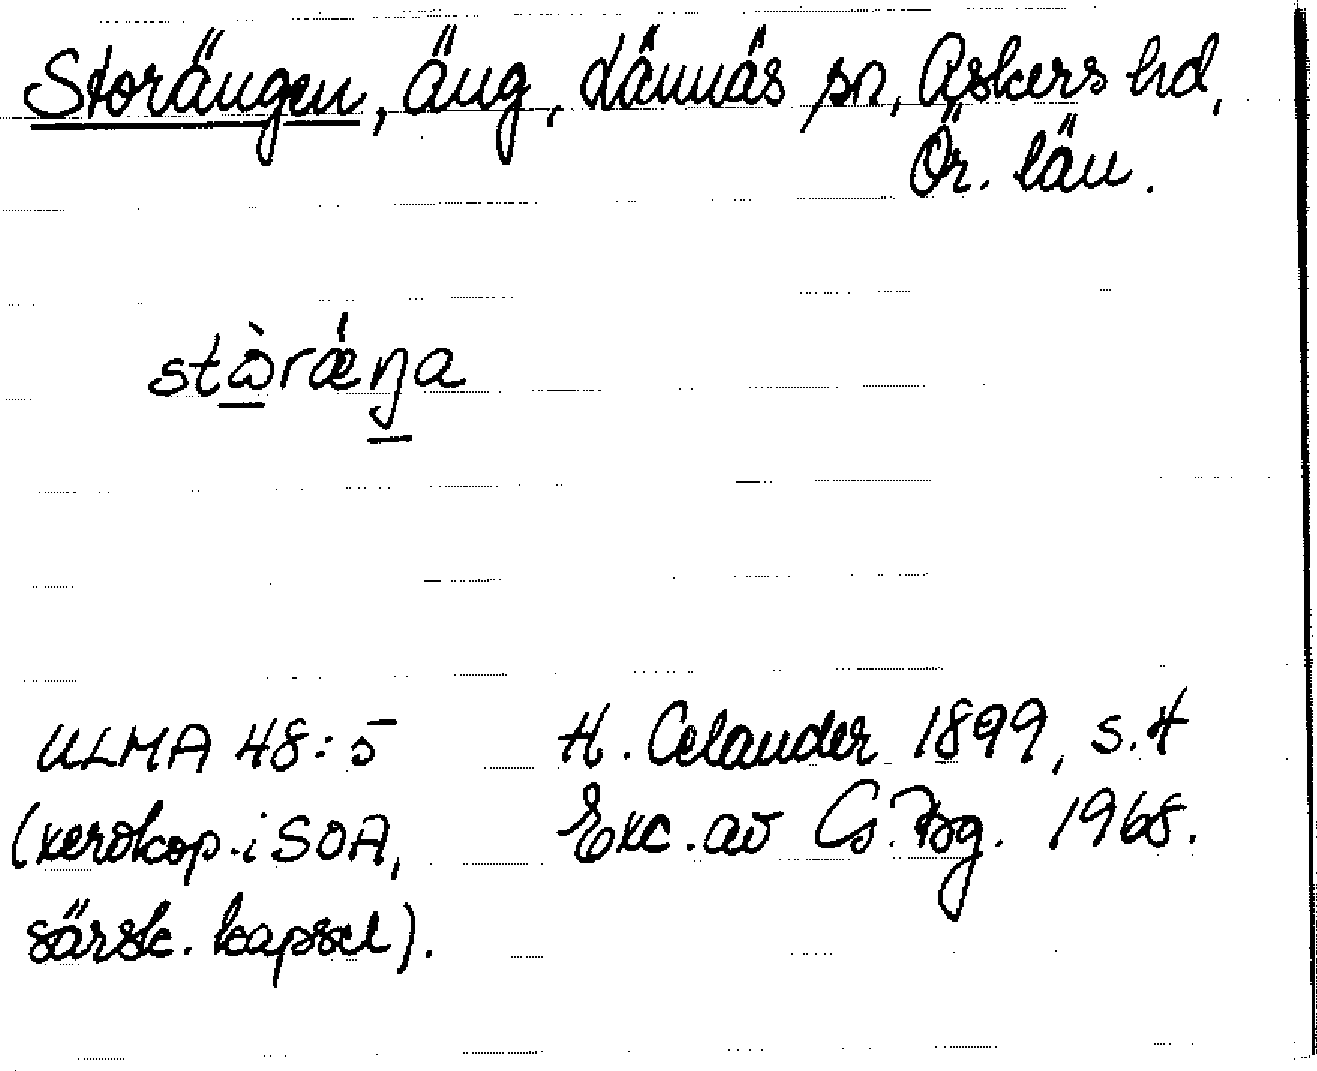 Storängen, äng, Lännäs sn, Askers hd,
Ör. län.
stὼrǽŋa
ULMA 48:5
(xerokop. i SOA,
särsk. kapsel).
H. Celander 1899, s. 4
Exc. av G. Bg. 1968.